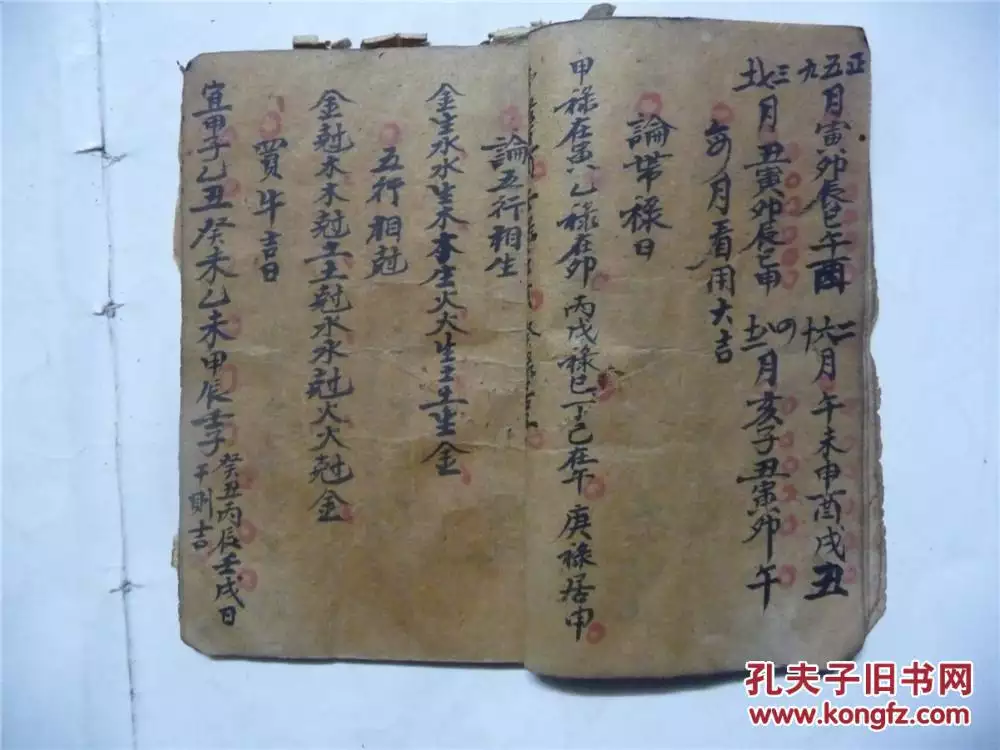 正五九月寅卯辰巳午酉 二六十月午未申酉戌丑
三七十一月丑寅卯辰巳申 四八十二月亥子丑寅卯午
每月看用大吉
論帶禄日
甲禄在寅乙禄在卯 丙戊禄巳丁己在午 庚禄居申
論五行相生
金生水水生木木生火火生土土生金
五行相尅
金尅木木尅土土尅水水尅火火尅金
買牛吉日
宜甲子乙丑癸未乙未甲辰壬子癸丑丙辰壬戌日
干則吉
孔夫子旧书网
www.kongfz.com